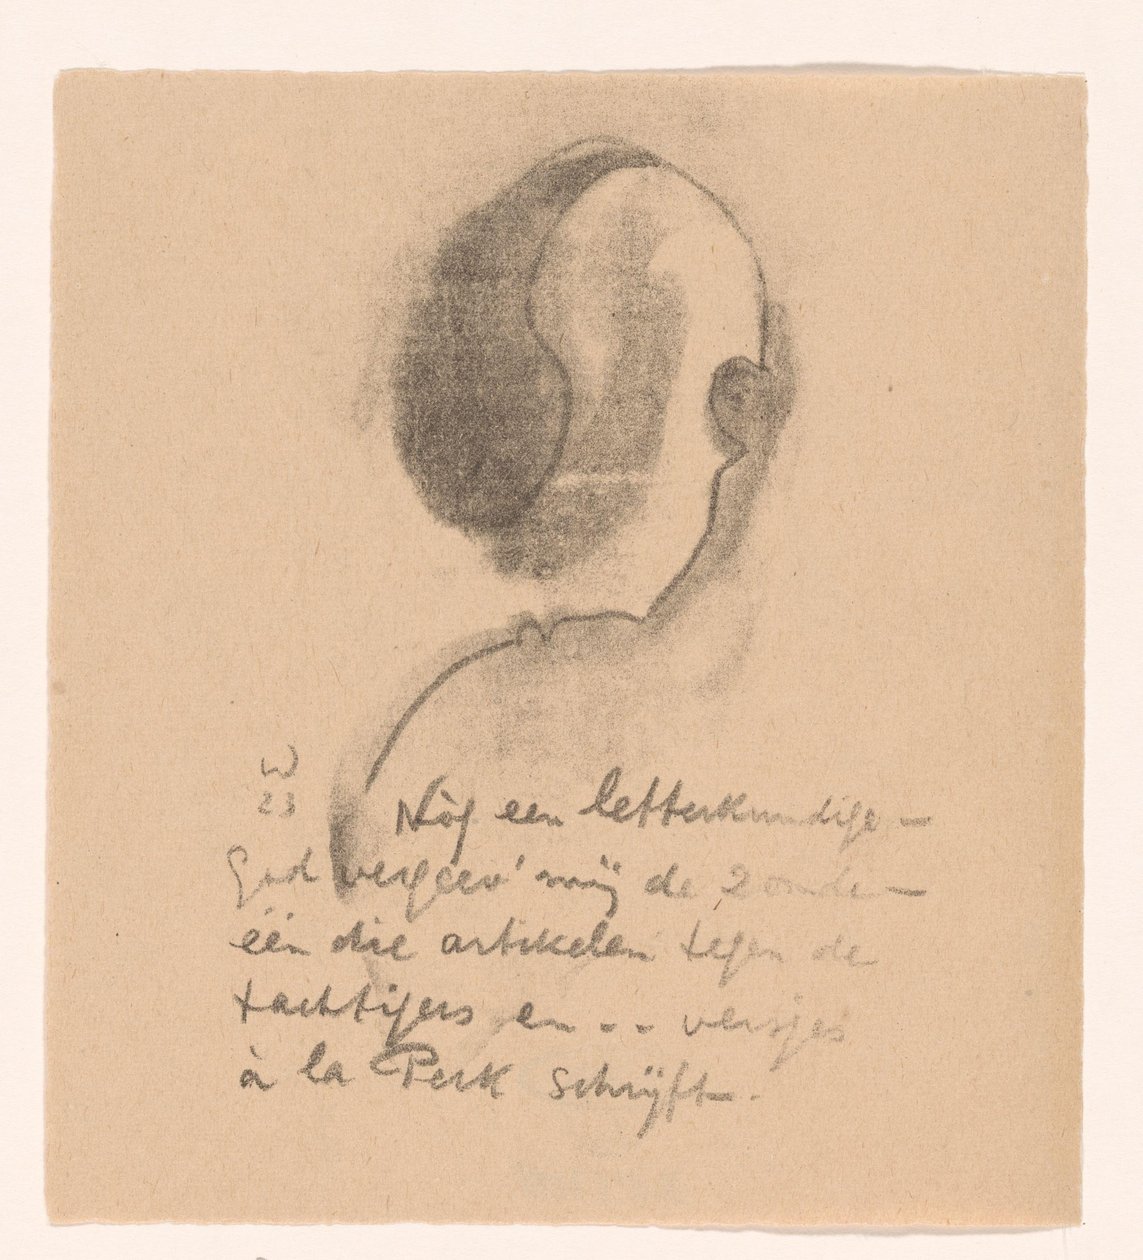 W
23
Nòg een letterkundige —
God vergeev' mij de zonde —
één die artikelen tegen de
tachtigers en .. versjes
à la Perk schrijft.